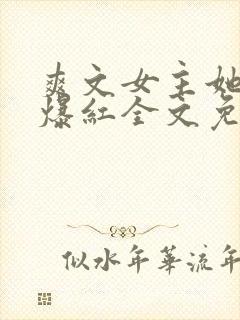 爽文女主她
爆红全文免
似水年华流年